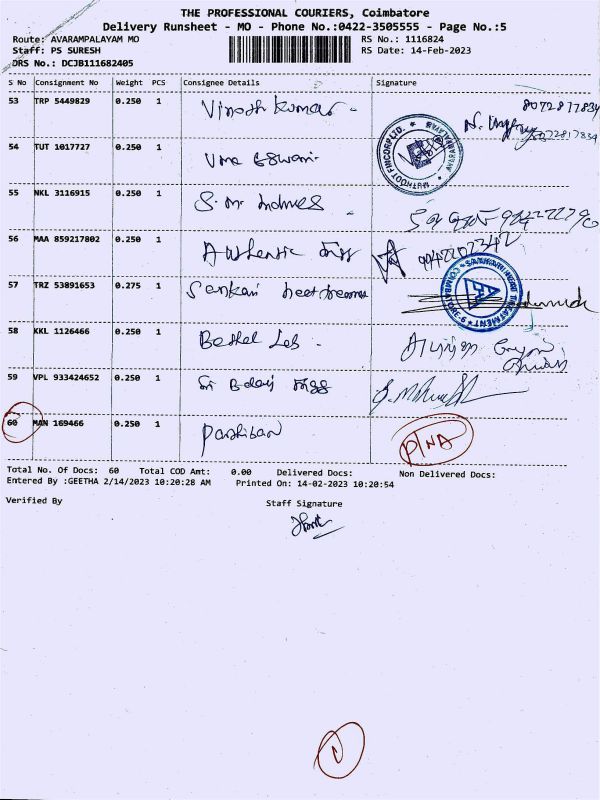 THE PROFESSIONAL COURIERS, Coimbatore
Delivery Runsheet - MO - Phone No.:0422-3505555 - Page No.:5
Route: AVARAMPALAYAM MO RS No.: 1116824
Staff: PS SURESH RS Date: 14-Feb-2023
DRS No.: DCJB111682405
S No Consignment No Weight PCS Consignee Details Signature
53 TRP 5449829 0.250 1 Vinoth Kumar 8072817834
8072817834
54 TUT 1017727 0.250 1 Uma Eswari MUTHOOT FINCORP LTD.
55 NKL 3116915 0.250 1 S.M.
56 MAA 859217802 0.250 1 Authentic 9942202342
57 TRZ 53891653 0.275 1 Sankari heat treatment
58 KKL 1126466 0.250 1 Bethel Lab
59 VPL 933424652 0.250 1 Sri Balaji
60 MAN 169466 0.250 1 Parthiban P/NA
Total No. Of Docs: 60 Total COD Amt: 0.00 Delivered Docs: Non Delivered Docs:
Entered By :GEETHA 2/14/2023 10:20:28 AM Printed On: 14-02-2023 10:20:54
Verified By Staff Signature